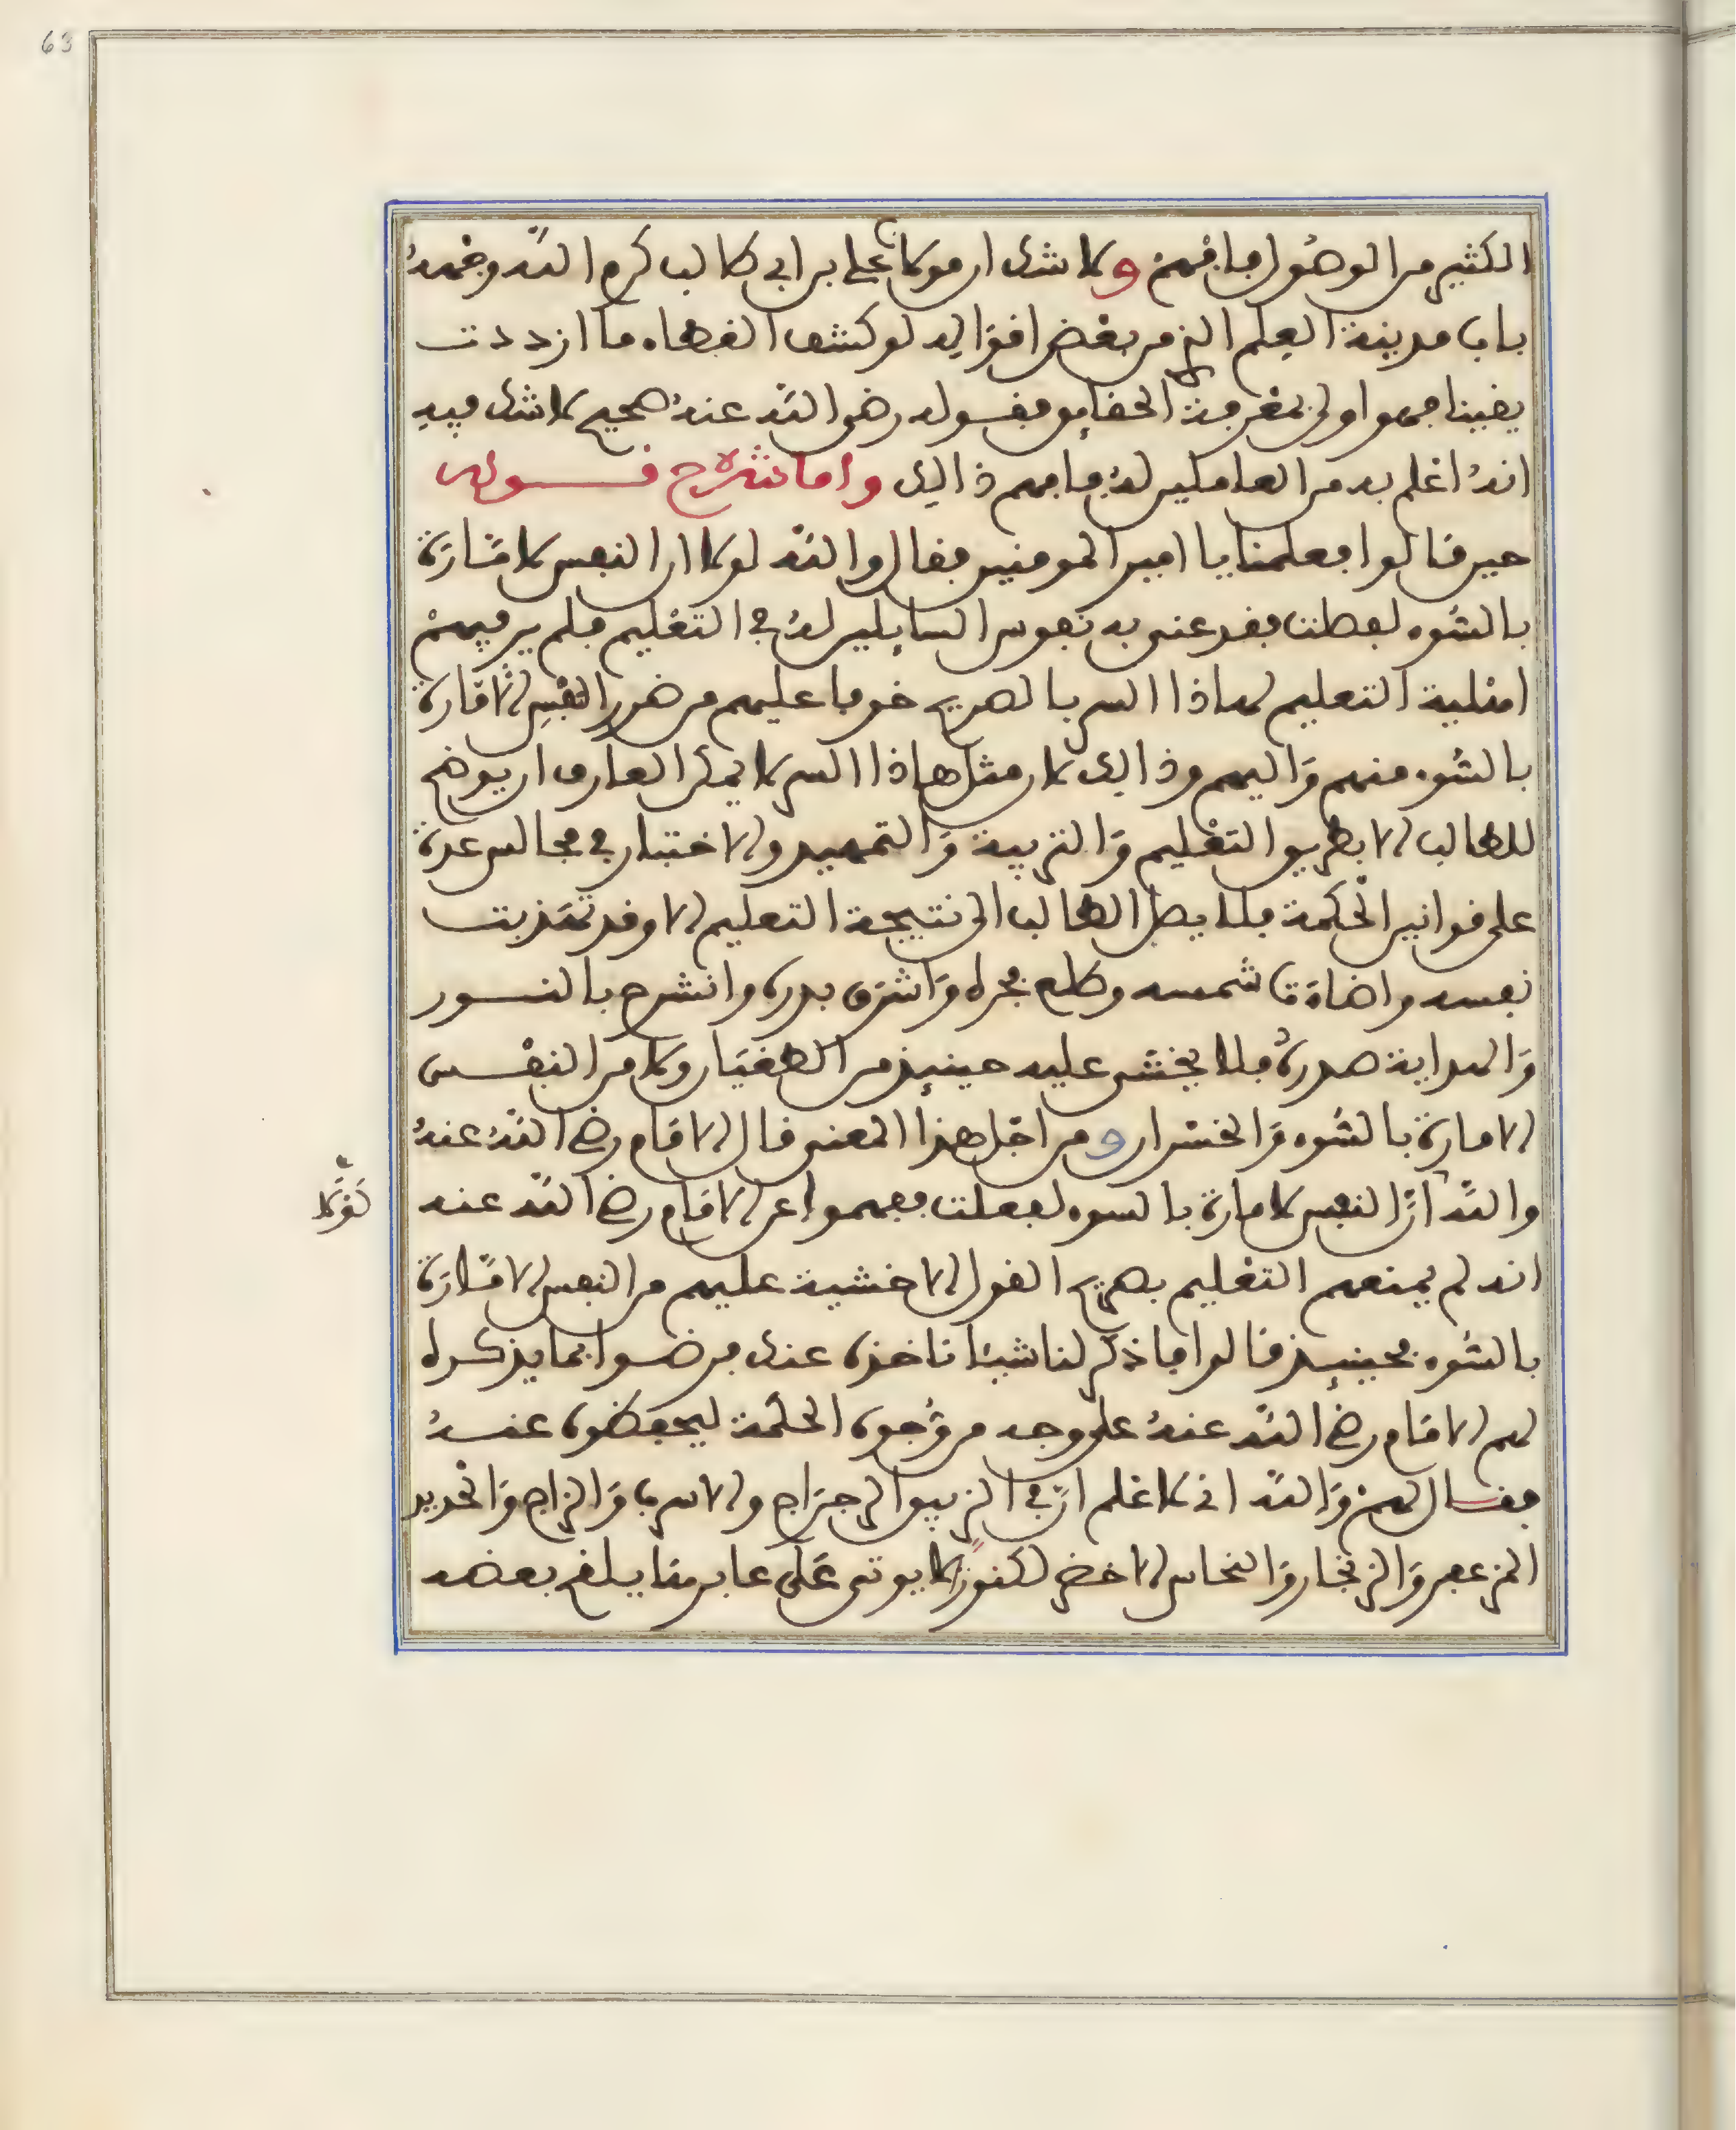 63
الكثير من الوصول فافهم ولا شك ان مولانا علي بن ابي طالب كرم الله وجهه
باب مدينة العلم الذي من بعض اقواله لو كشف الغطاء ما ازددت
يقينا فهو اولى بمعرفة الحقايق فقوله رضي الله عنه صحيح لا شك فيه
انه اعلم به من العاملين له فافهم ذالك واما شرح قوله
حين قالوا فعلمنا يا امير المومنين فقال والله لولا ان النفس لامّارة
بالسّوء لفعلت فقد عنى به نفوس السايلين له في التعليم فلم ير فيهم
اهلية التعليم لهاذا السر بالصريح خوفا عليهم من ضرر النفس الامّارة
بالسّوء منهم واليهم وذالك لان مثل هاذا السر لا يمكن العارف ان يوضح
للطالب الا بطريق التعليم والتربية والتمهيد والاختبار في مجالس عدة
على قوانين الحكمة فلا يصل الطالب الى نتيجة التعليم الا وقد تهذبت
نفسه واضاءت شمسه وطلع فجره واشرق بدره وانشرح بالنور
والهداية صدره فلا يخشى عليه حينئذ من الطغيان ولا من النفس
الامارة بالسّوء والخسران ومن اجل هذا المعنى قال الامام رضي الله عنه
والله انّ النفس لامارة بالسوء لفعلت ففهموا عن الامام رضي الله عنه
لَوْلَا
انه لم يمنعهم التعليم بصريح القول الا خشية عليهم من النفس الامّارة
بالسّوء فحينئذ قالوا فاذكر لنا شيئا ناخذه عنك فرضوا بما يذكره
لهم الامام رضي الله عنه على وجه من وُجوه الحكمة ليحفظوه عنه
فقال لهم والله اني لاعلم انّ في الزيبق الرجراج والاسرب والزاج والحديد
المزعفر والزنجار والنحاس الاخضر لكنوزا لا يوتى على غابرها يلقح بعضه